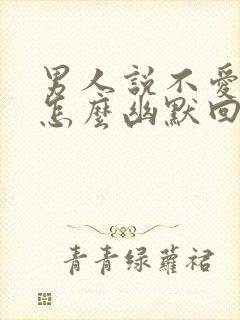 男人說不愛
怎麼幽默回
青青绿蘿裙